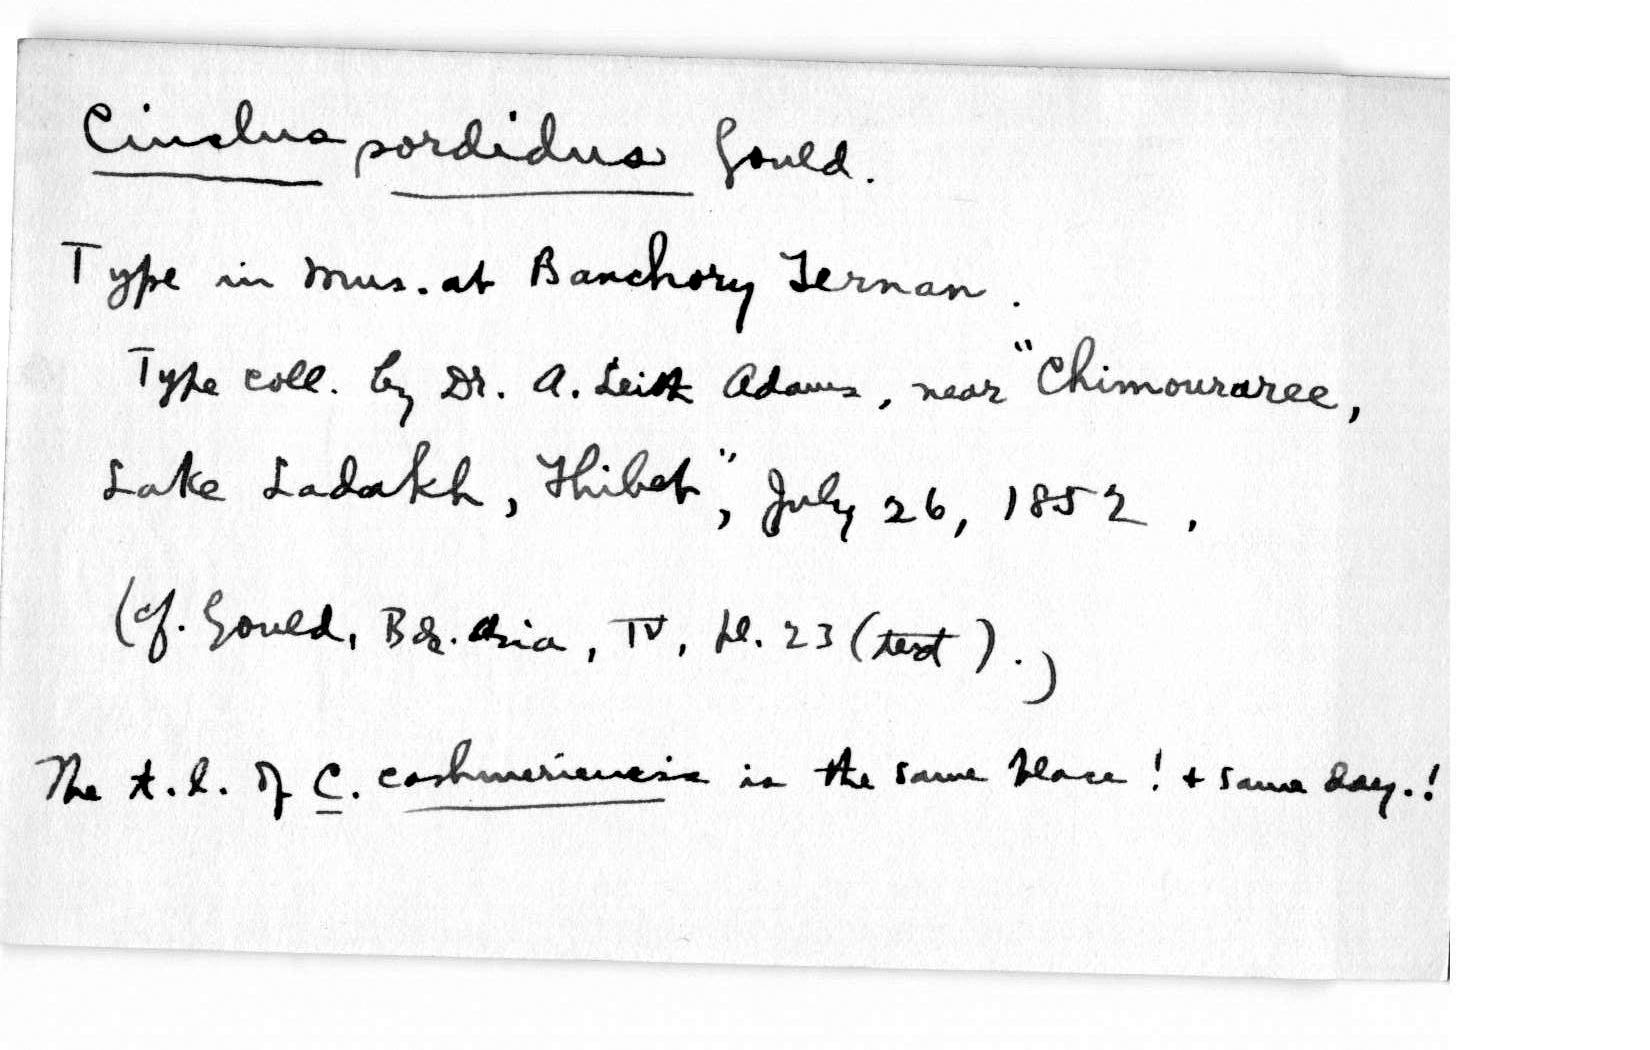 Cinclus sordidus Gould.
Type in Mus. at Banchory Ternan.
Type coll. by Dr. A. Leith Adams, near "Chimouraree,
Lake Ladakh, Thibet", July 26, 1852,
(cf. Gould, Bds. Asia, IV, pl. 23 (text).)
The t.l. of C. cashmeriensis is the same place! + same day.!